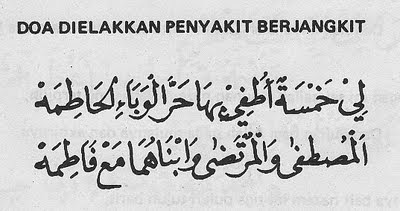 DOA DIELAKKAN PENYAKIT BERJANGKIT
لِيْ خَمْسَةٌ أُطْفِيْ بِهَا حَرَّ الْوَبَاءِ الْحَاطِمَهْ
اَلْمُصْطَفٰى وَالْمُرْتَضٰى وَابْنَاهُمَا مَعْ فَاطِمَهْ